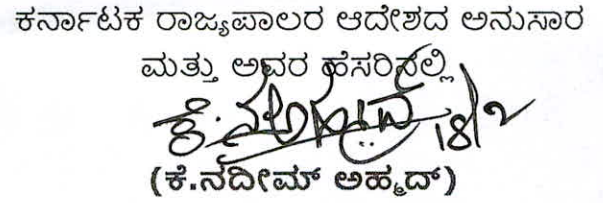 ಕರ್ನಾಟಕ ರಾಜ್ಯಪಾಲರ ಆದೇಶದ ಅನುಸಾರ
ಮತ್ತು ಅವರ ಹೆಸರಿನಲ್ಲಿ
18/2
(ಕೆ.ನದೀಮ್ ಅಹ್ಮದ್)